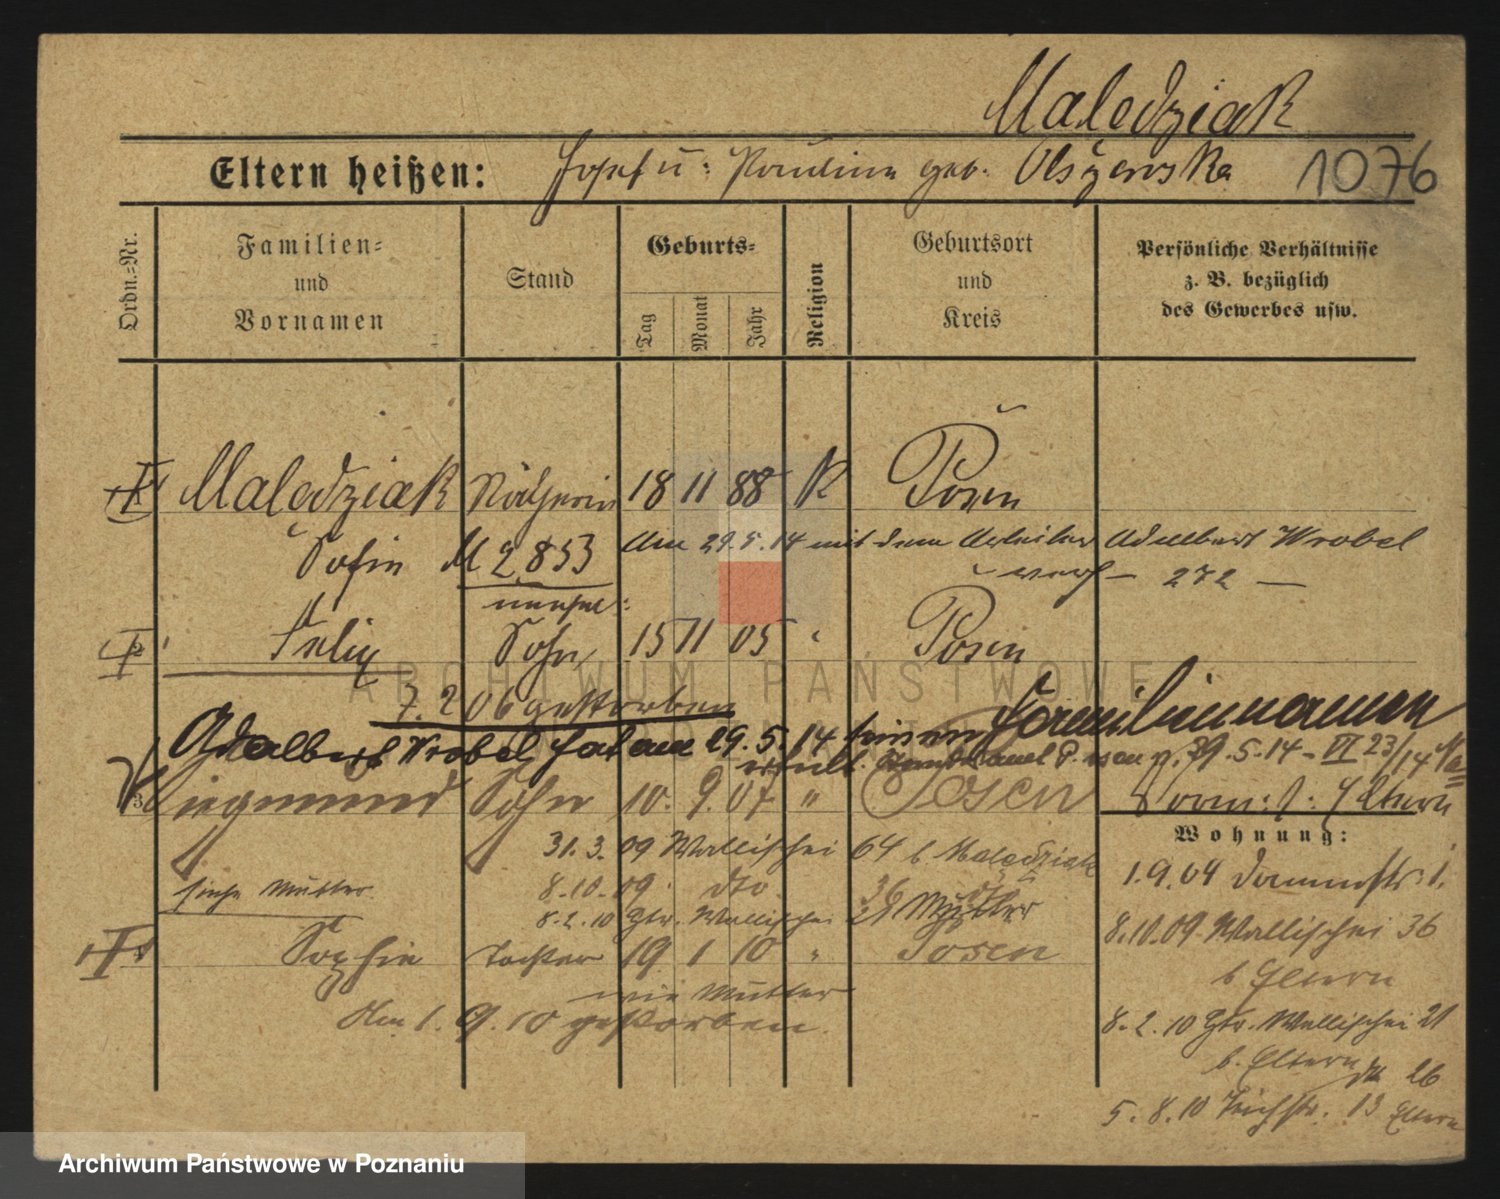 Maledziak
Eltern heißen: Josef u: Paulina geb. Olszewska 1076
Ordn.-Nr.
Familien-
und
Vornamen
Stand
Geburts-
Tag
Monat
Jahr
Religion
Geburtsort
und
Kreis
Persönliche Verhältnisse
z. B. bezüglich
des Gewerbes usw.
Maledziak Näherin 18 11 88 K Posen
Sofie M 2853 Am 29.5.14 mit dem Arbeiter Adalbert Wrobel
verh – 272 –
unehel:
Felix Sohn 15 11 05 Posen
7. 2 06 gestorben
Adalbert Wrobel hat am 29.5.14 seinen Familiennamen
erteilt. Standesamt Posen 29.5.14 - VI 23/14
Siegmund Sohn 10. 9. 07 " Posen
Vorm: s: Eltern
Wohnung:
31. 3. 09 Wallischei 64 b Maledziak
1.9.04 Dammstr. 1.
siehe Mutter 8.10.09. dto 36
8.2.10 Gtr. Wallischei 21 Mutter
8.10.09 Wallischei 36
b Eltern
Sophie Tochter 19 1 10 " Posen
wie Mutter
Am 1. 9. 10 gestorben.
8. 2. 10 Gtr. Wallischei 21
b. Eltern
26
5. 8. 10 Teichstr. 13 Eltern
ARCHIWUM PAŃSTWOWE
W POZNANIU
Archiwum Państwowe w Poznaniu